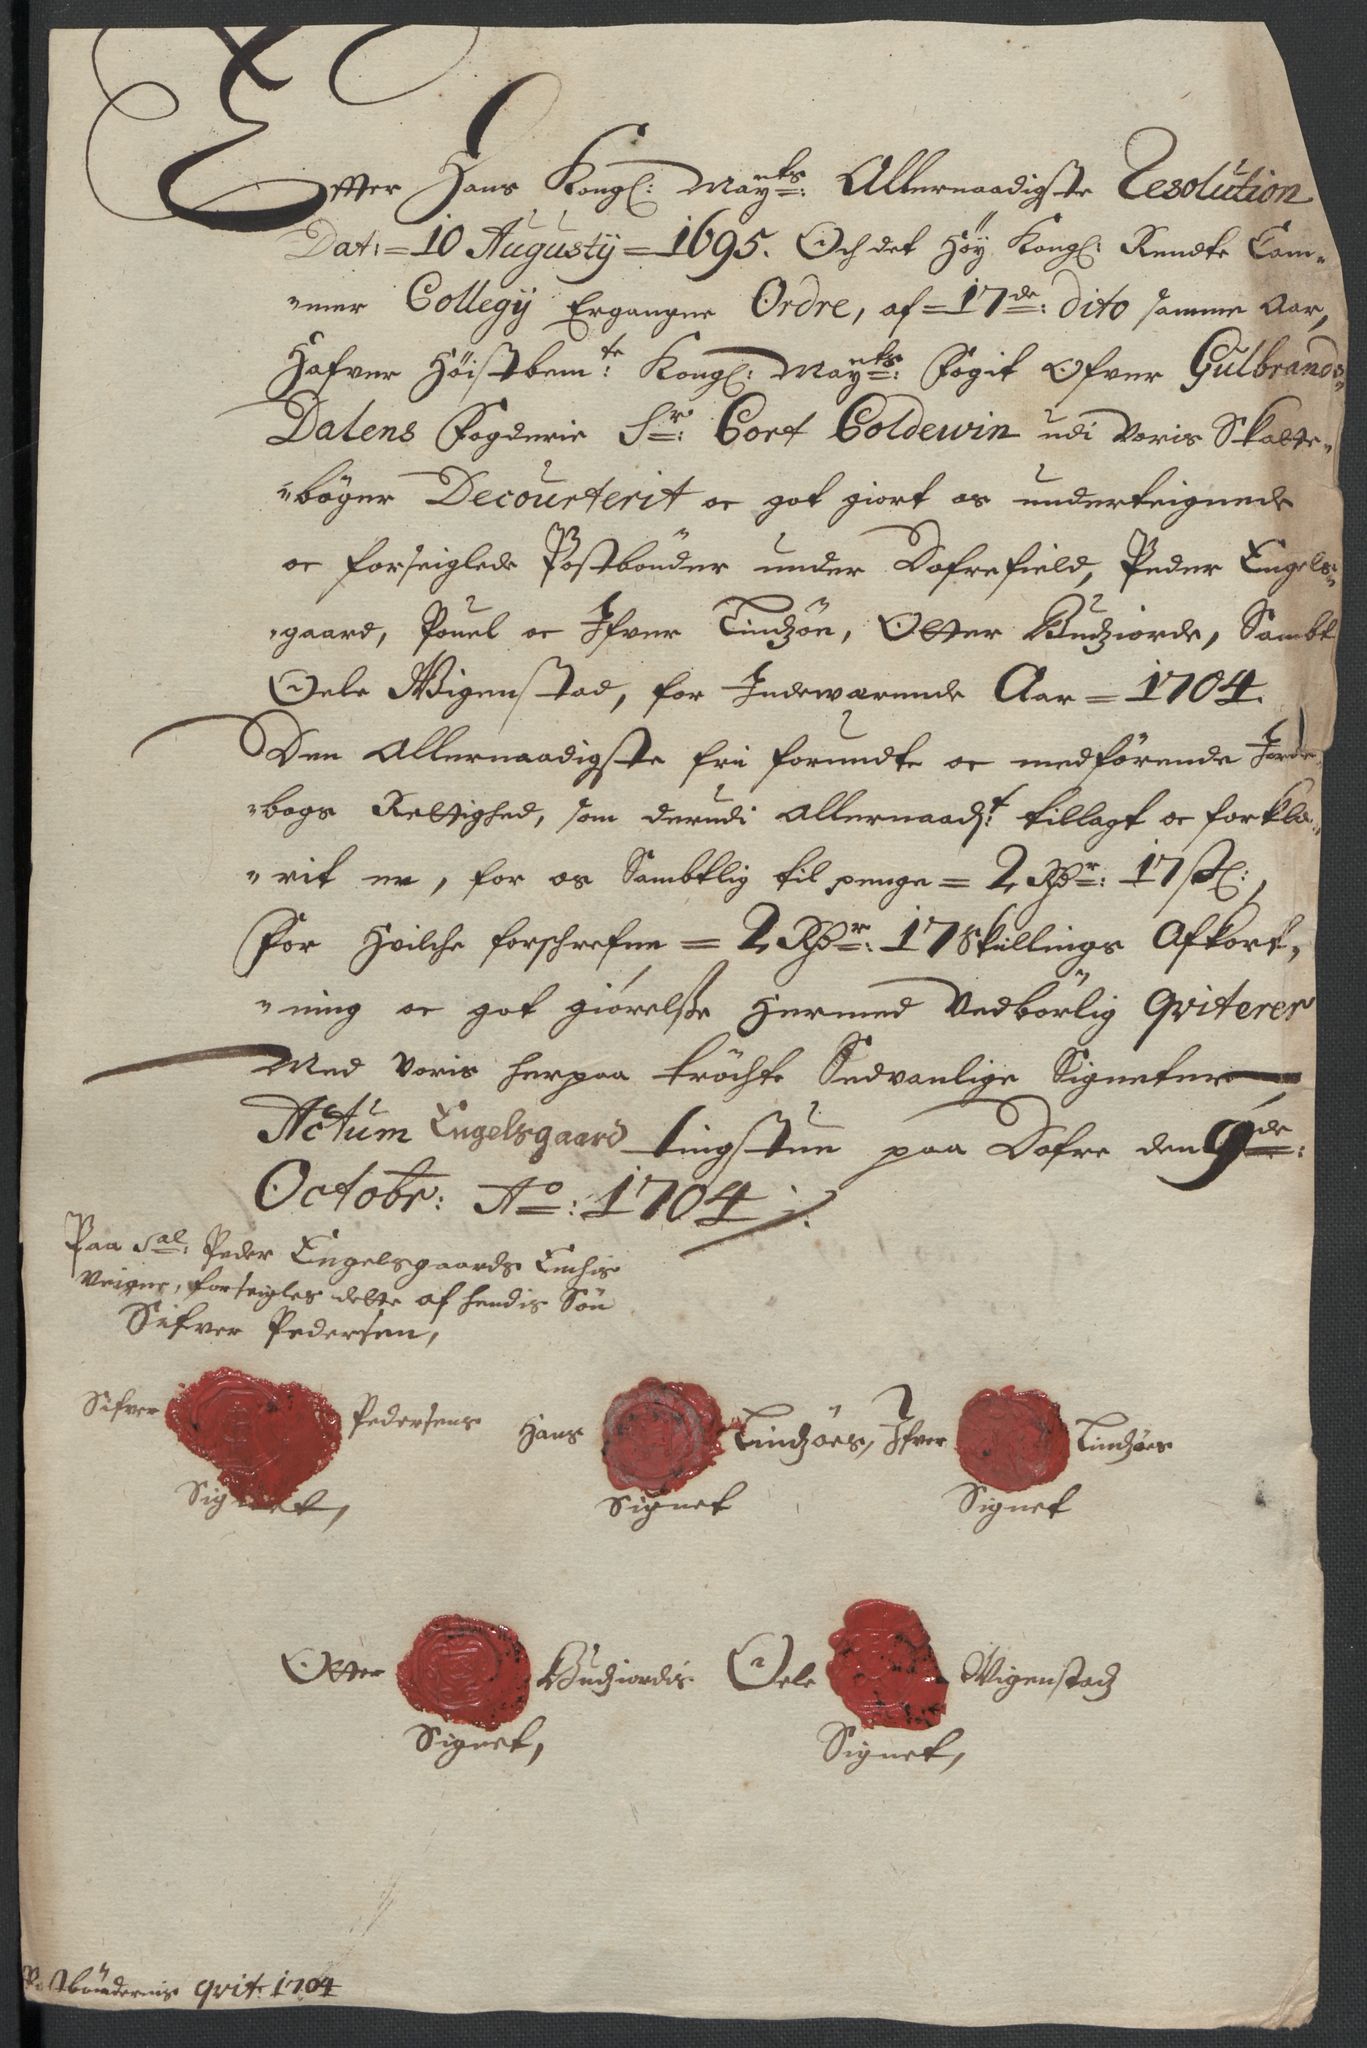 Effter Hans Kongl: Mayts: Allernaadigste Resolution
Dat: = 10 Augustij = 1695. Och det Höy Kongl: Rendte Cam-
-mer Collegij Ergangne Ordre, af = 17de: dito samme Aar,
Hafver Höistbemte: Kongl: Mayts: Fogit Ofver Gulbrands-
Dalens Fogderie Sr: Cort Coldewin udi Voris Skatte-
-böger Decourterit oc got giort os underteignede
oc forseiglede Postbönder under Dofrefield, Peder Engels-
-gaard, Pouel oc Ifver Tindzöe, Otter Budziorde, Sambt
Oele Wigenstad, for Indewærende Aar = 1704.
Den Allernaadigste fri forundte oc medförende Jorde-
-bogs Rettighed, som derudi Allernaadt: tillagt oc forkla-
-rit er, for os Sambtlig til penge = 2 Rdr: 17 sk:,
For Hvilche forschrefne = 2 Rdr: 17 Skillings Afkort-
-ning oc got giörelsse Hermed Vedbörlig Qviterer
Med Voris herpaa tröchte Sedvanlige Signeter
Actum Engelsgaard tingstue paa Dofre den 9de:
Octobr: Ao: 1704 ./.
Paa Sal: Peder Engelsgaards Enchis
Veigne, forseigles dette af hendis Sön
Sifver Pedersen,
Sifver Pedersens Signet,
Hans Tindzöes, Signet
Ifver Tindzöes Signet
Otter Budziordis Signet,
Oele Wigenstadz Signet,
Postböndernis qvit: 1704